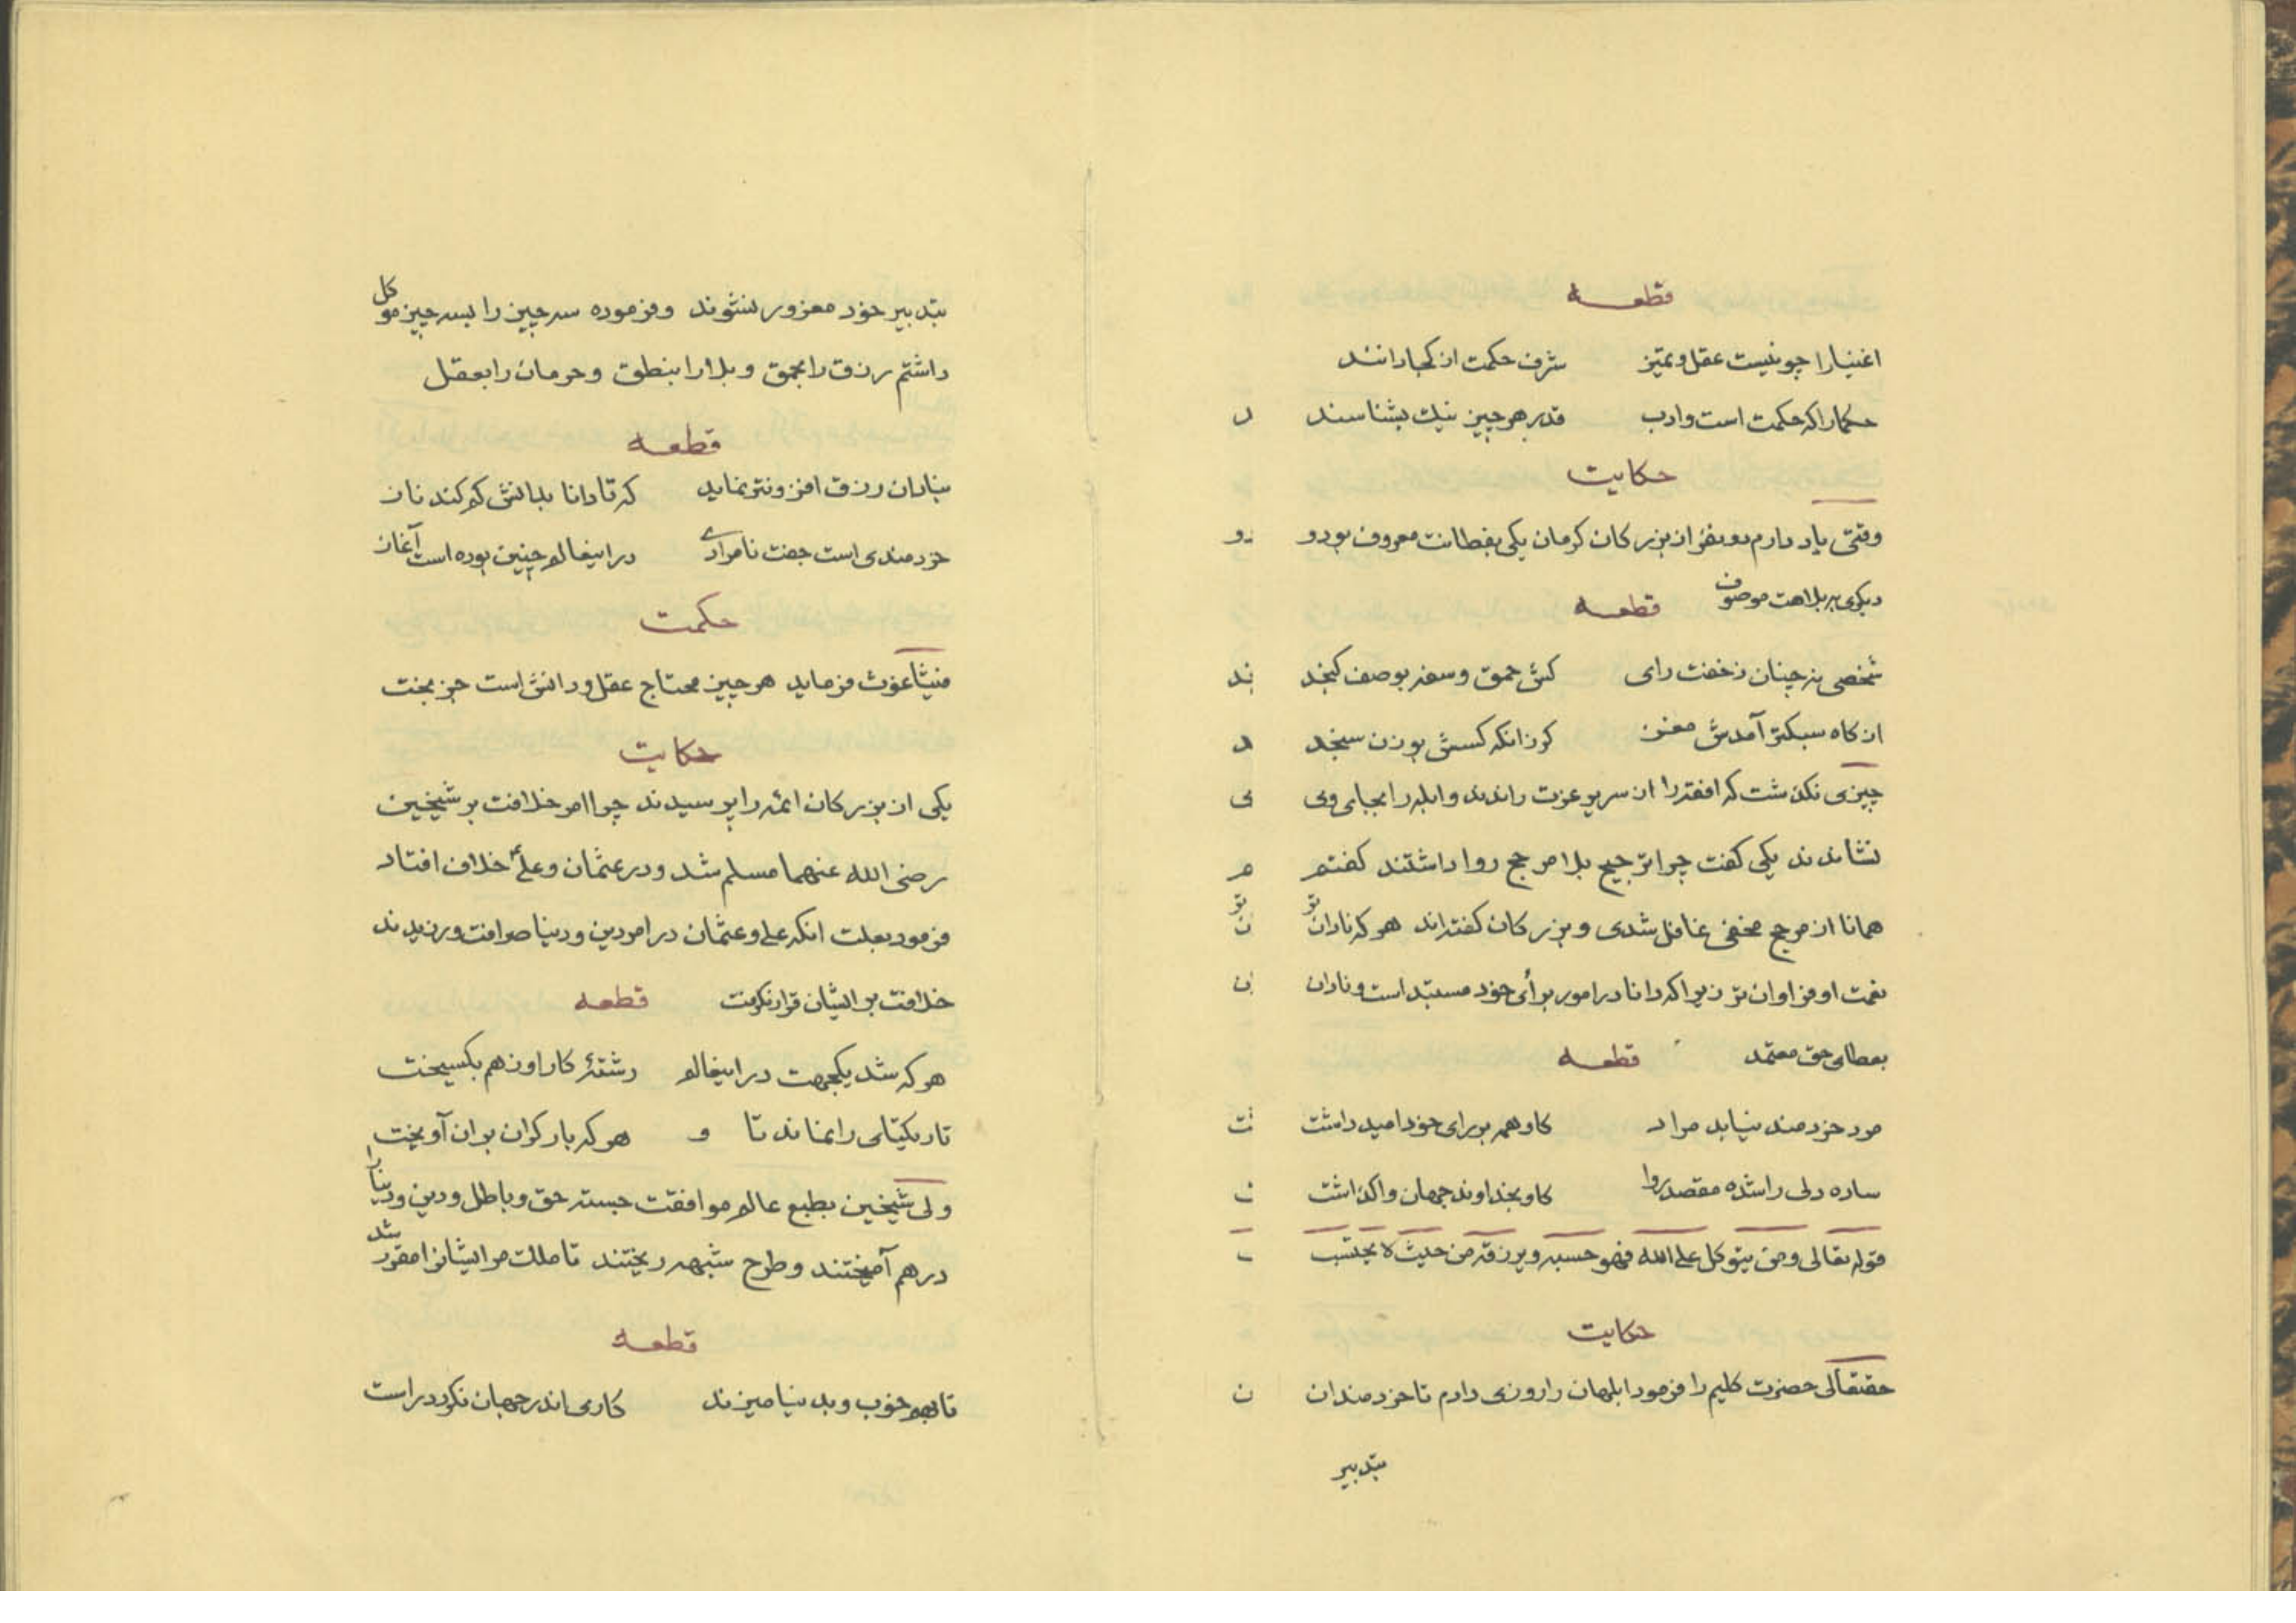 قطعه
اغنیارا چو نیست عقل و تمیز شرف حکمت از کجا دانند
حکمارا که حکمت است و ادب قدر هر چیز نیک بشناسند
حکایت
وقتی یاد دارم دو نفر از بزرکان کرمان یکی بفطانت معروف بود و
دیکری ببلاهت موصوف قطعه
شخصی نه چنان ز خفت رای کش حمق و سفه بوصف کنجد
از کاه سبکتر آمدش مغز کر زانکه کسش بوزن سنجد
چیزی نکذشت که افقه را از سریر عزت راندند و ابله را بجای وی
نشاندند یکی کفت چرا ترجیح بلا مرجح روا داشتند کفتم
همانا از مرجح مخفی غافل شدی و بزرکان کفته‌اند هر که نادان تر
نعمت او فراوان تر زیرا که دانا در امور برأی خود مستبد است و نادان
بعطای حق معتمد قطعه
مرد خردمند نیابد مراد کاو همه بر رای خود امید داشت
ساده دلی را شده مقصد روا کاو بخداوند جهان واکذاشت
قوله تعالی و من یتوکل علی الله فهو حسبه و یرزقه من حیث لا یحتسب
حکایت
حقتعالی حضرت کلیم را فرمود ابلهان را روزی دادم تا خردمندان
بتدبیر
بتدبیر خود مغرور نشوند و فرموده سه چیز را بسه چیز موکل
داشتم رزق را بحمق و بلا را بنطق و حرمان را بعقل
قطعه
بنادان رزق افزونتر نماید که تا دانا بدانش کم کند ناز
خردمندی است جفت نامرادی در اینعالم چنین بوده است آغاز
حکمت
فیثاغوث فرماید هر چیز محتاج عقل و دانش است جز بخت
حکایت
یکی از بزرکان ائمه را پرسیدند چرا امر خلافت بر شیخین
رضی الله عنهما مسلم شد و در عثمان و علی خلاف افتاد
فرمود بعلت انکه علی و عثمان در امر دین و دنیا مرافت ورزیدند
خلافت بر ایشان قرار نکرفت قطعه
هر که شد یکجهت در اینعالم رشتهٔ کار او ز هم بکسیخت
تار یکتای را نماند تا و هر که بار کران بر ان آویخت
ولی شیخین بطبع عالم موافقت جسته حق و باطل و دین و دنیا را
در هم آمیختند و طرح شبهه ریختند تا ملک مر ایشانرا مقرر شد
قطعه
تا بهم خوب و بد نیامیزند کاری اندر جهان نکردد راست